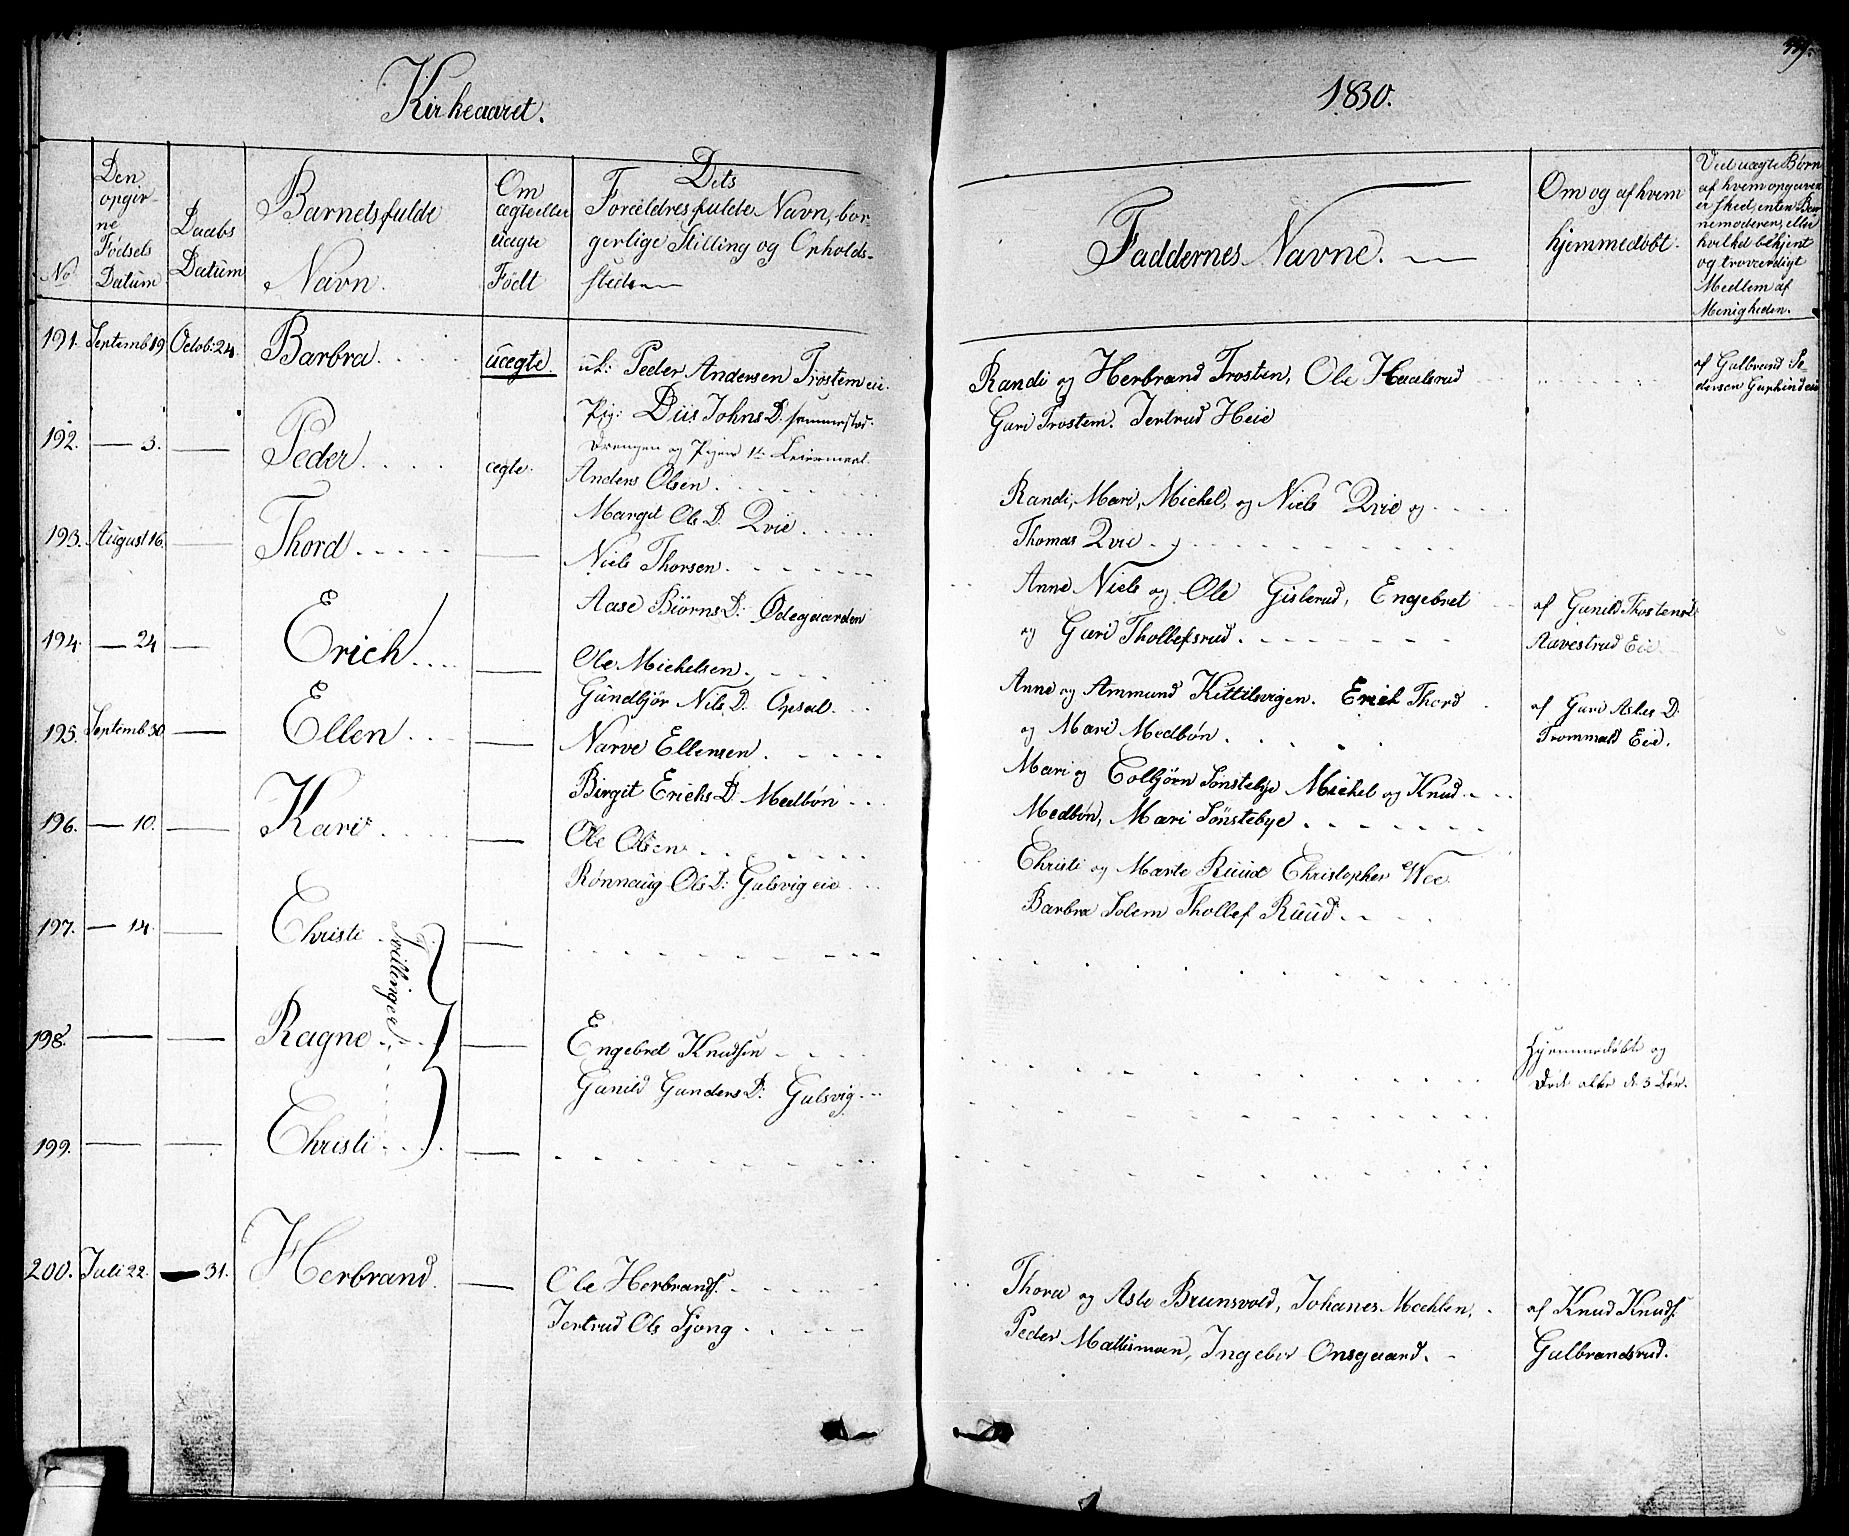 Kirkeaaret.
1830.
No.
Den opgivne Fødsels Datum
Daabs Datum
Barnets fulde Navn.
Om ægte eller uægte Født
Dets Forældres fulde Navn, borgerlige Stilling og Opholdssted
Faddernes Navne.
Om og af hvem hjemmedøbt.
Ved uægte Børn af hvem opgaven er sked, enten Barnemoderen, eller hvilket bekjent og troværdigt Medlem af Menigheden.
191. Septemb 19 Octob: 24 Barbra. uægte.
uk: Peder Andersen Trostem eie.
Pig: Johns D.
Drengen og Pigens 1te Leiermaal.
Randi og Herbrand Trosten, Ole
Guri Trostem. Jertrud Heie
af Gulbrand Pedersen
192. — 3. — Peder ægte.
Anders Olsen
Margit Ols D. Qvie
Randi, Mari, Michel, og Niels Qvie og
Thomas Qvie.
193. August 16. — Thord —
Niels Thorsen
Aase Biørns D: Ødegaarden
Anne Niels og Ole Gislerud, Engebret
og Guri Thollefsrud.
af Gunild Thostens D:
Aavestrud Eie
194. — 24 — Erich —
Ole Michelsen
Gundbjør Nils D. Opsal
Anne og Ammund Kittilsvigen. Erich Thord
og Mari Medbøn
af Guri Asles D.
Trommald Eie.
195. Septemb 30 — Ellen —
Narve Ellensen
Birgit Erichs D. Medbøn
Mari og Colbjørn Sønstebye Michel og Knud
Medbøn, Mari Sønstebye
196. — 10. — Kari —
Ole Olsen
Rønnaug Ols D: Gulsvig eie
Christi og Marte Ruud Christopher Wee
Barbra Solem Thollef Ruud
197. — 14. — Christi —
Tvillinger
198. — — Ragne —
Engebret Knudsen
Gunild Gunders D: Gulsvig
Hjemmedøbte og
Døde
199. — — Christi —
200. Juli 22. — 31. Herbrand —
Ole Herbrands.
Jertrud Ols Sjong
Thora og Asle Brunsvold, Johanes Mæhlen,
Peder Mattismoen, Ingebor Onsgaard.
af Knud Knuds.
Gulbrandsrud.